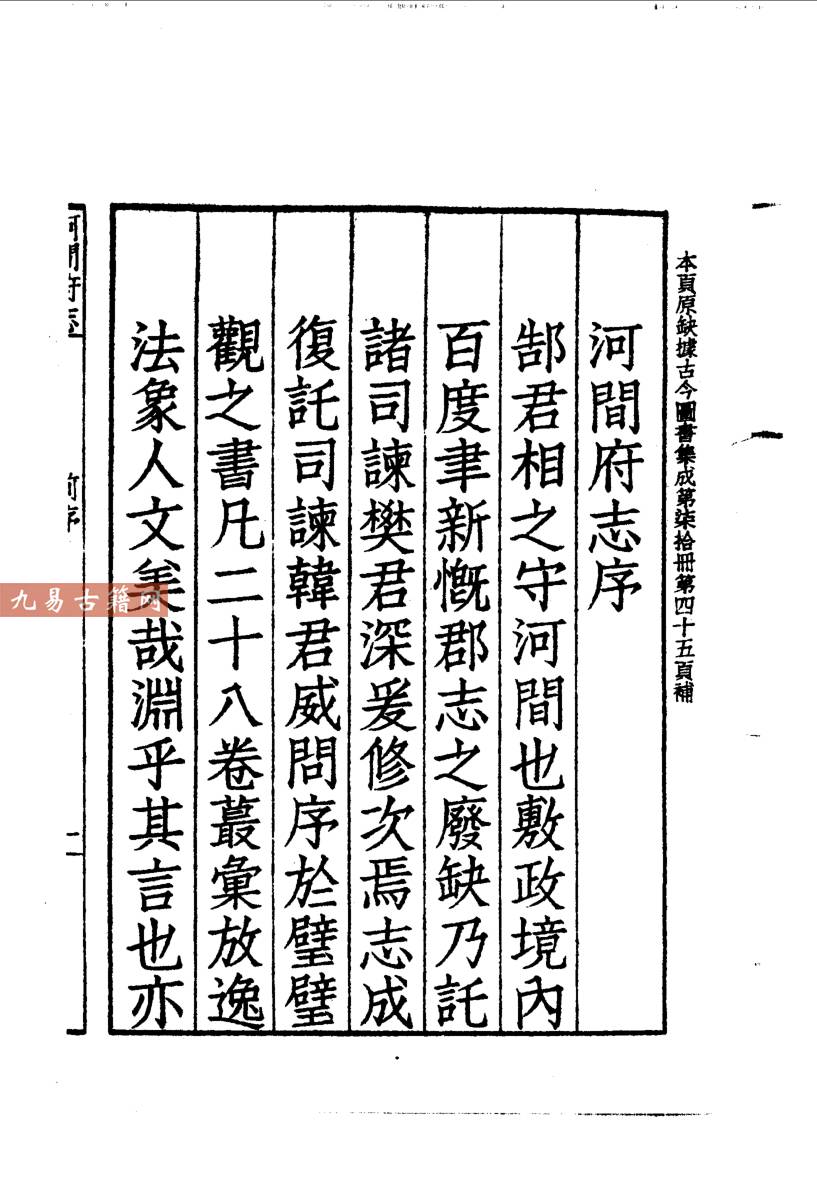 本頁原缺據古今圖書集成第柒拾冊第四十五頁補
河間府志序
郜君相之守河間也敷政境內
百度聿新慨郡志之廢缺乃託
諸司諫樊君深爰修次焉志成
復託司諫韓君威問序於璧璧
觀之書凡二十八卷蕞彙放逸
法象人文美哉淵乎其言也亦
河間府志
前序
二
九易古籍网